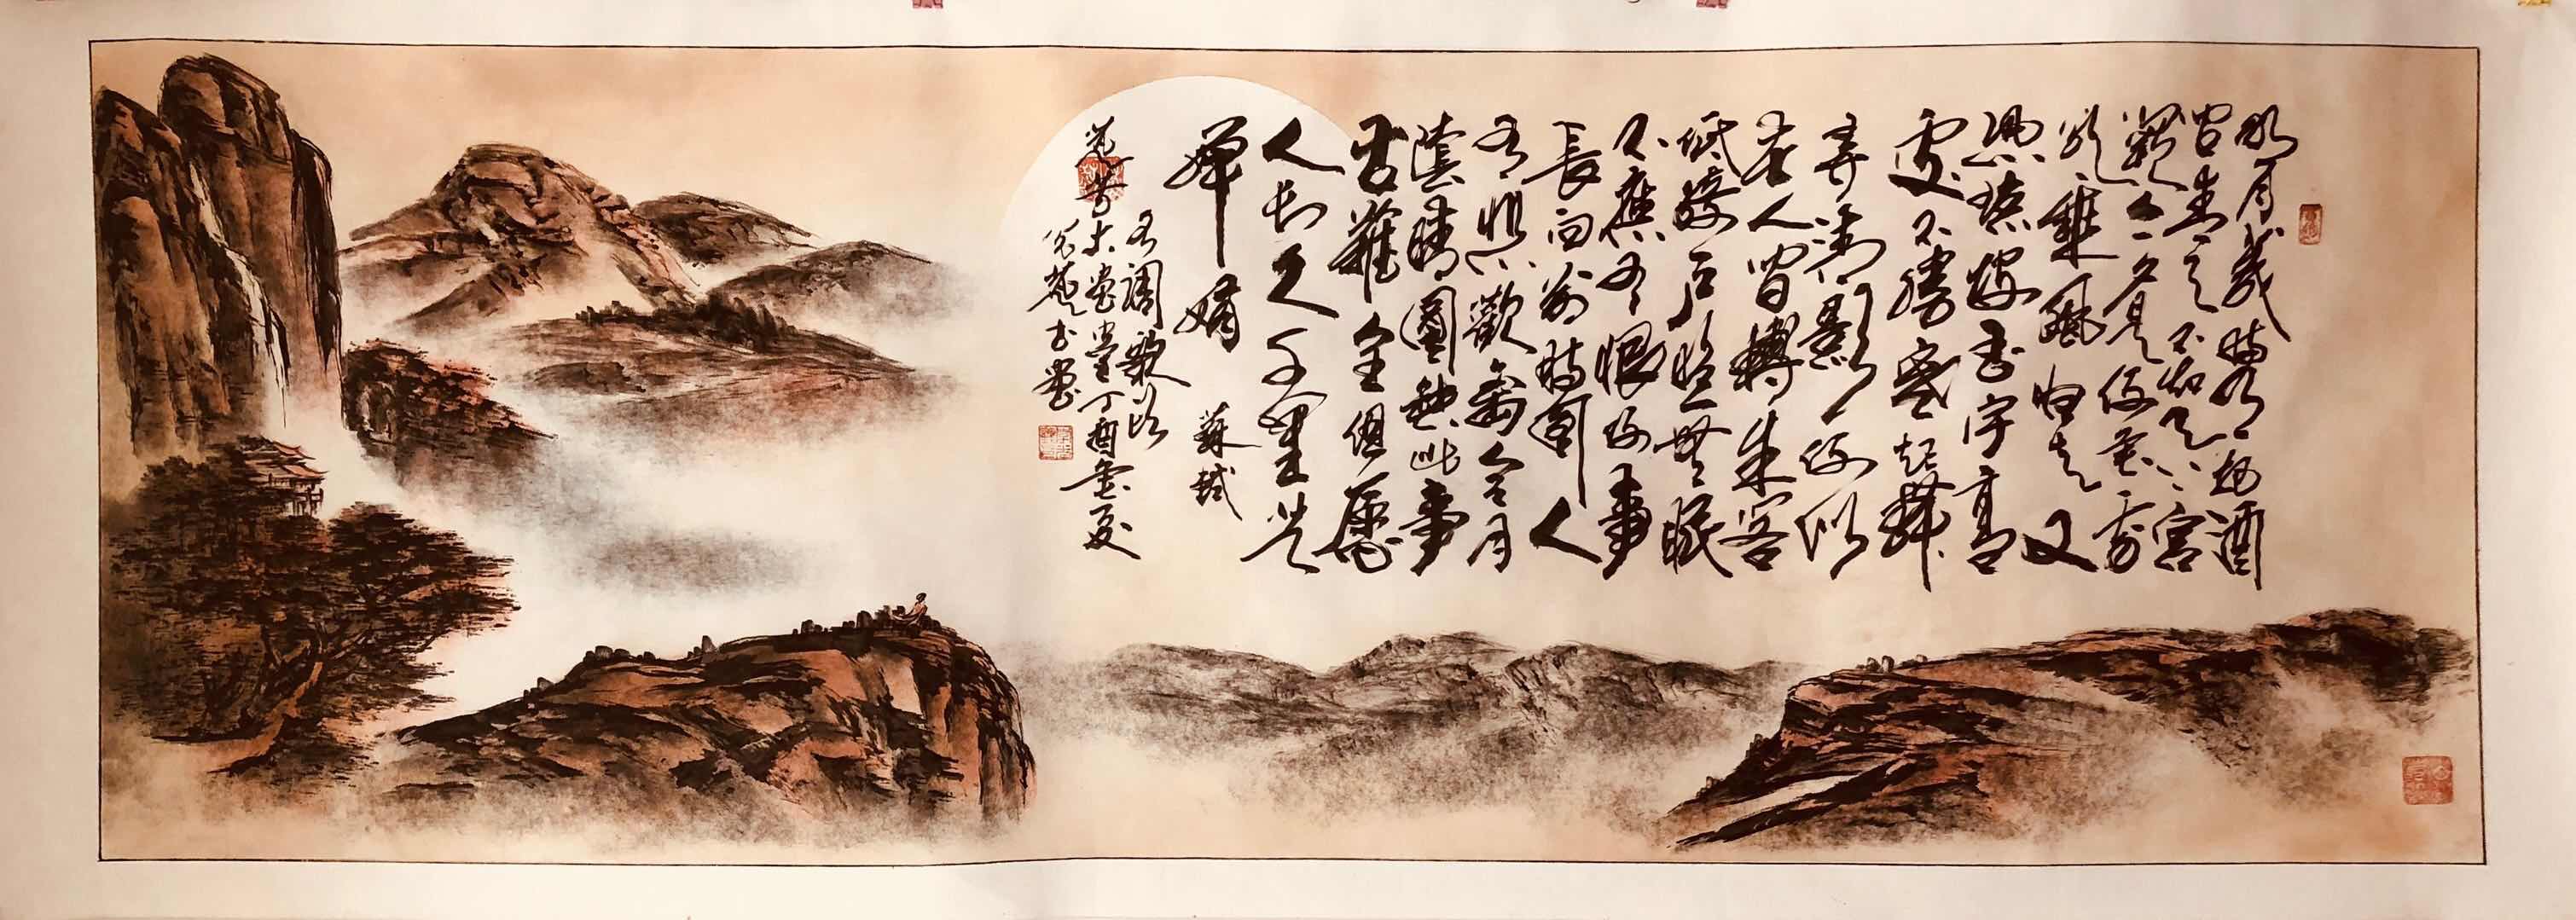 明月幾時有把酒
問青天不知天上宮
闕今夕是何年我
欲乘風歸去又
恐瓊樓玉宇高
處不勝寒起舞
弄清影何似
在人間轉朱閣
低綺戶照無眠
不應有恨何事
長向別時圓人
有悲歡離合月
陰晴圓缺此事
古難全但願
人長久千里共
嬋娟 蘇軾
調歌
丁酉 夏
書畫